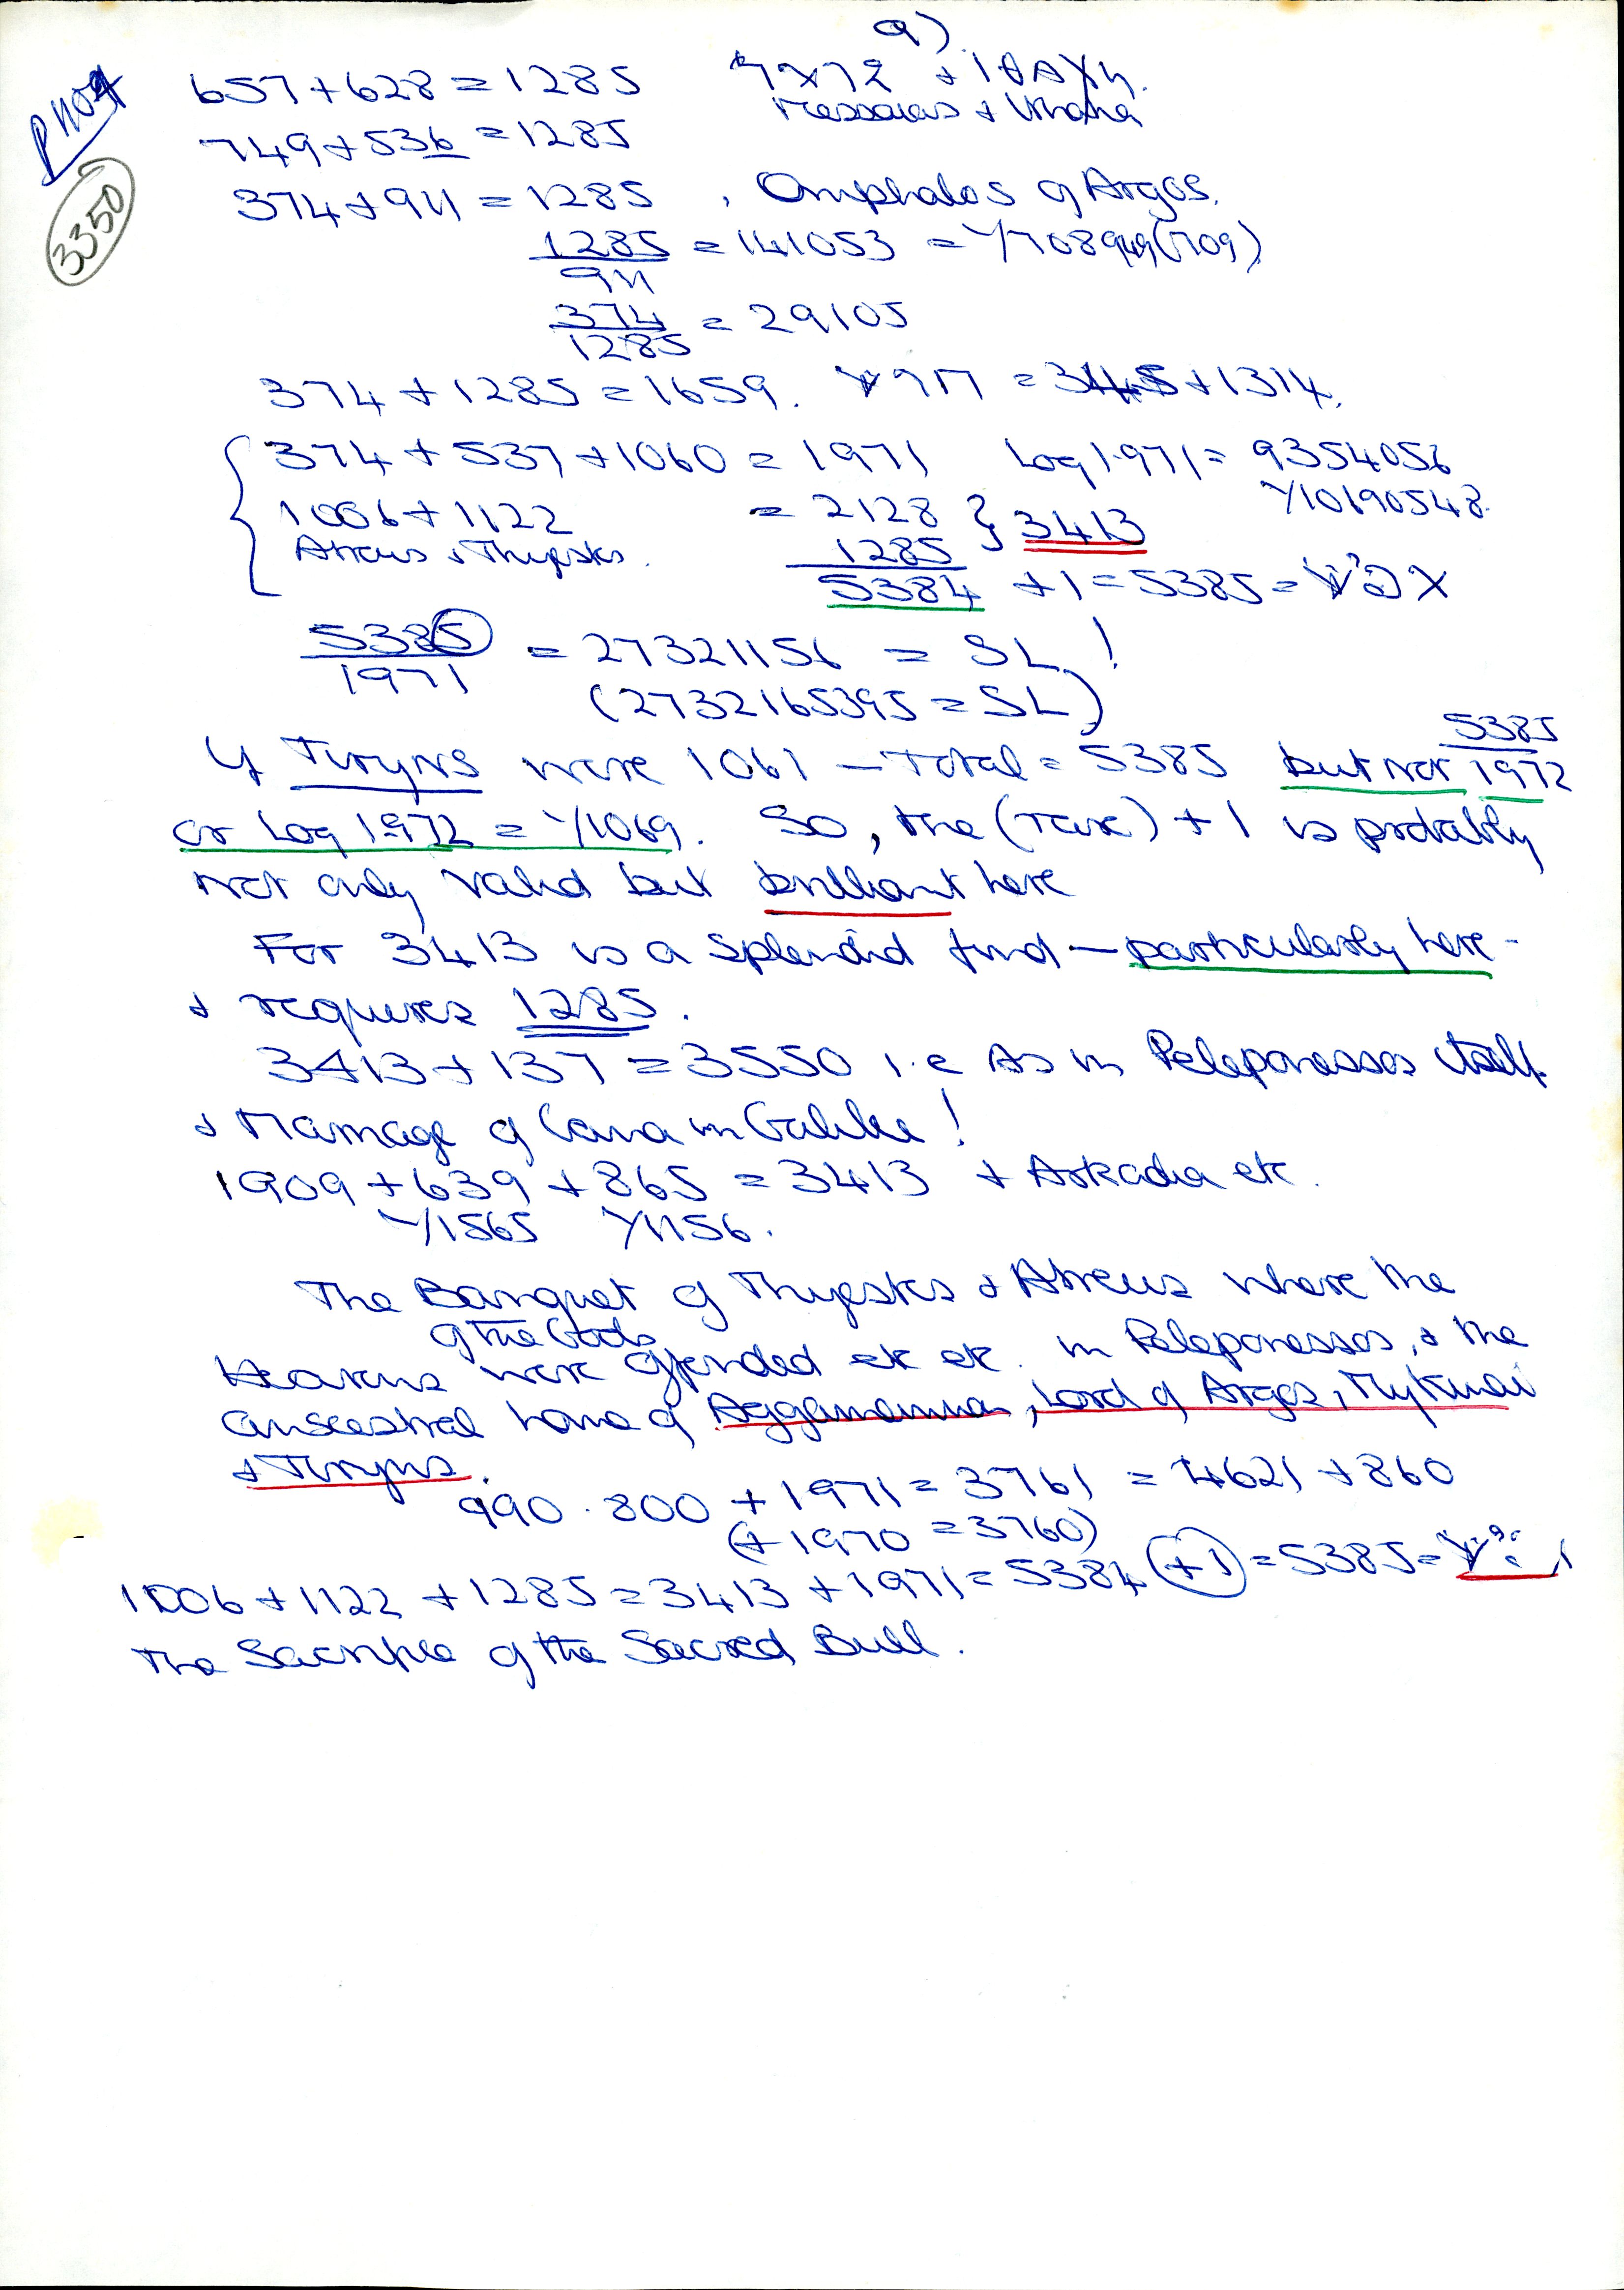 9)
3350
657 + 628 = 1285
749 + 536 = 1285
374 + 911 = 1285 , Omphalos of Argos.
1285/911 = 141053 = Y708949(709)
374/1285 = 29105
374 + 1285 = 1659. = 345 + 1314.
374 + 537 + 1060 = 1971 Log 1.971 = 9354056
Y10690548
1006 + 1122 = 2128 } 3413
Atreus & Thyestes. 1285
5384 + 1 = 5385 =
5385/1971 = 27321156 = SL !
(2732165395 = SL)
If Tiryns were 1061 – Total = 5385 but not 5385/1972
or Log 1.972 = Y1069. So, the (Tax) + 1 is probably
not only valid but brilliant here
For 3413 is a splendid find – particularly here -
& requires 1285.
3413 + 137 = 3550 i.e As in Peleponessos itself
& Marriage of Cana in Galilee !
1909 + 639 + 865 = 3413 + Arkadia etc.
Y1565 Y1156.
The Banquet of Thyestes & Atreus where the
of the Gods
Heavens were offended etc etc. in Peleponessos, & the
anscestral home of Aggamemnon, Lord of Argos, Mykenai
& Tiryns.
990 . 800 + 1971 = 3761 = 4621 + 860
(+ 1970 = 3760)
1006 + 1122 + 1285 = 3413 + 1971 = 5384 (+1) = 5385 =
The Sacrifice of the Sacred Bull.